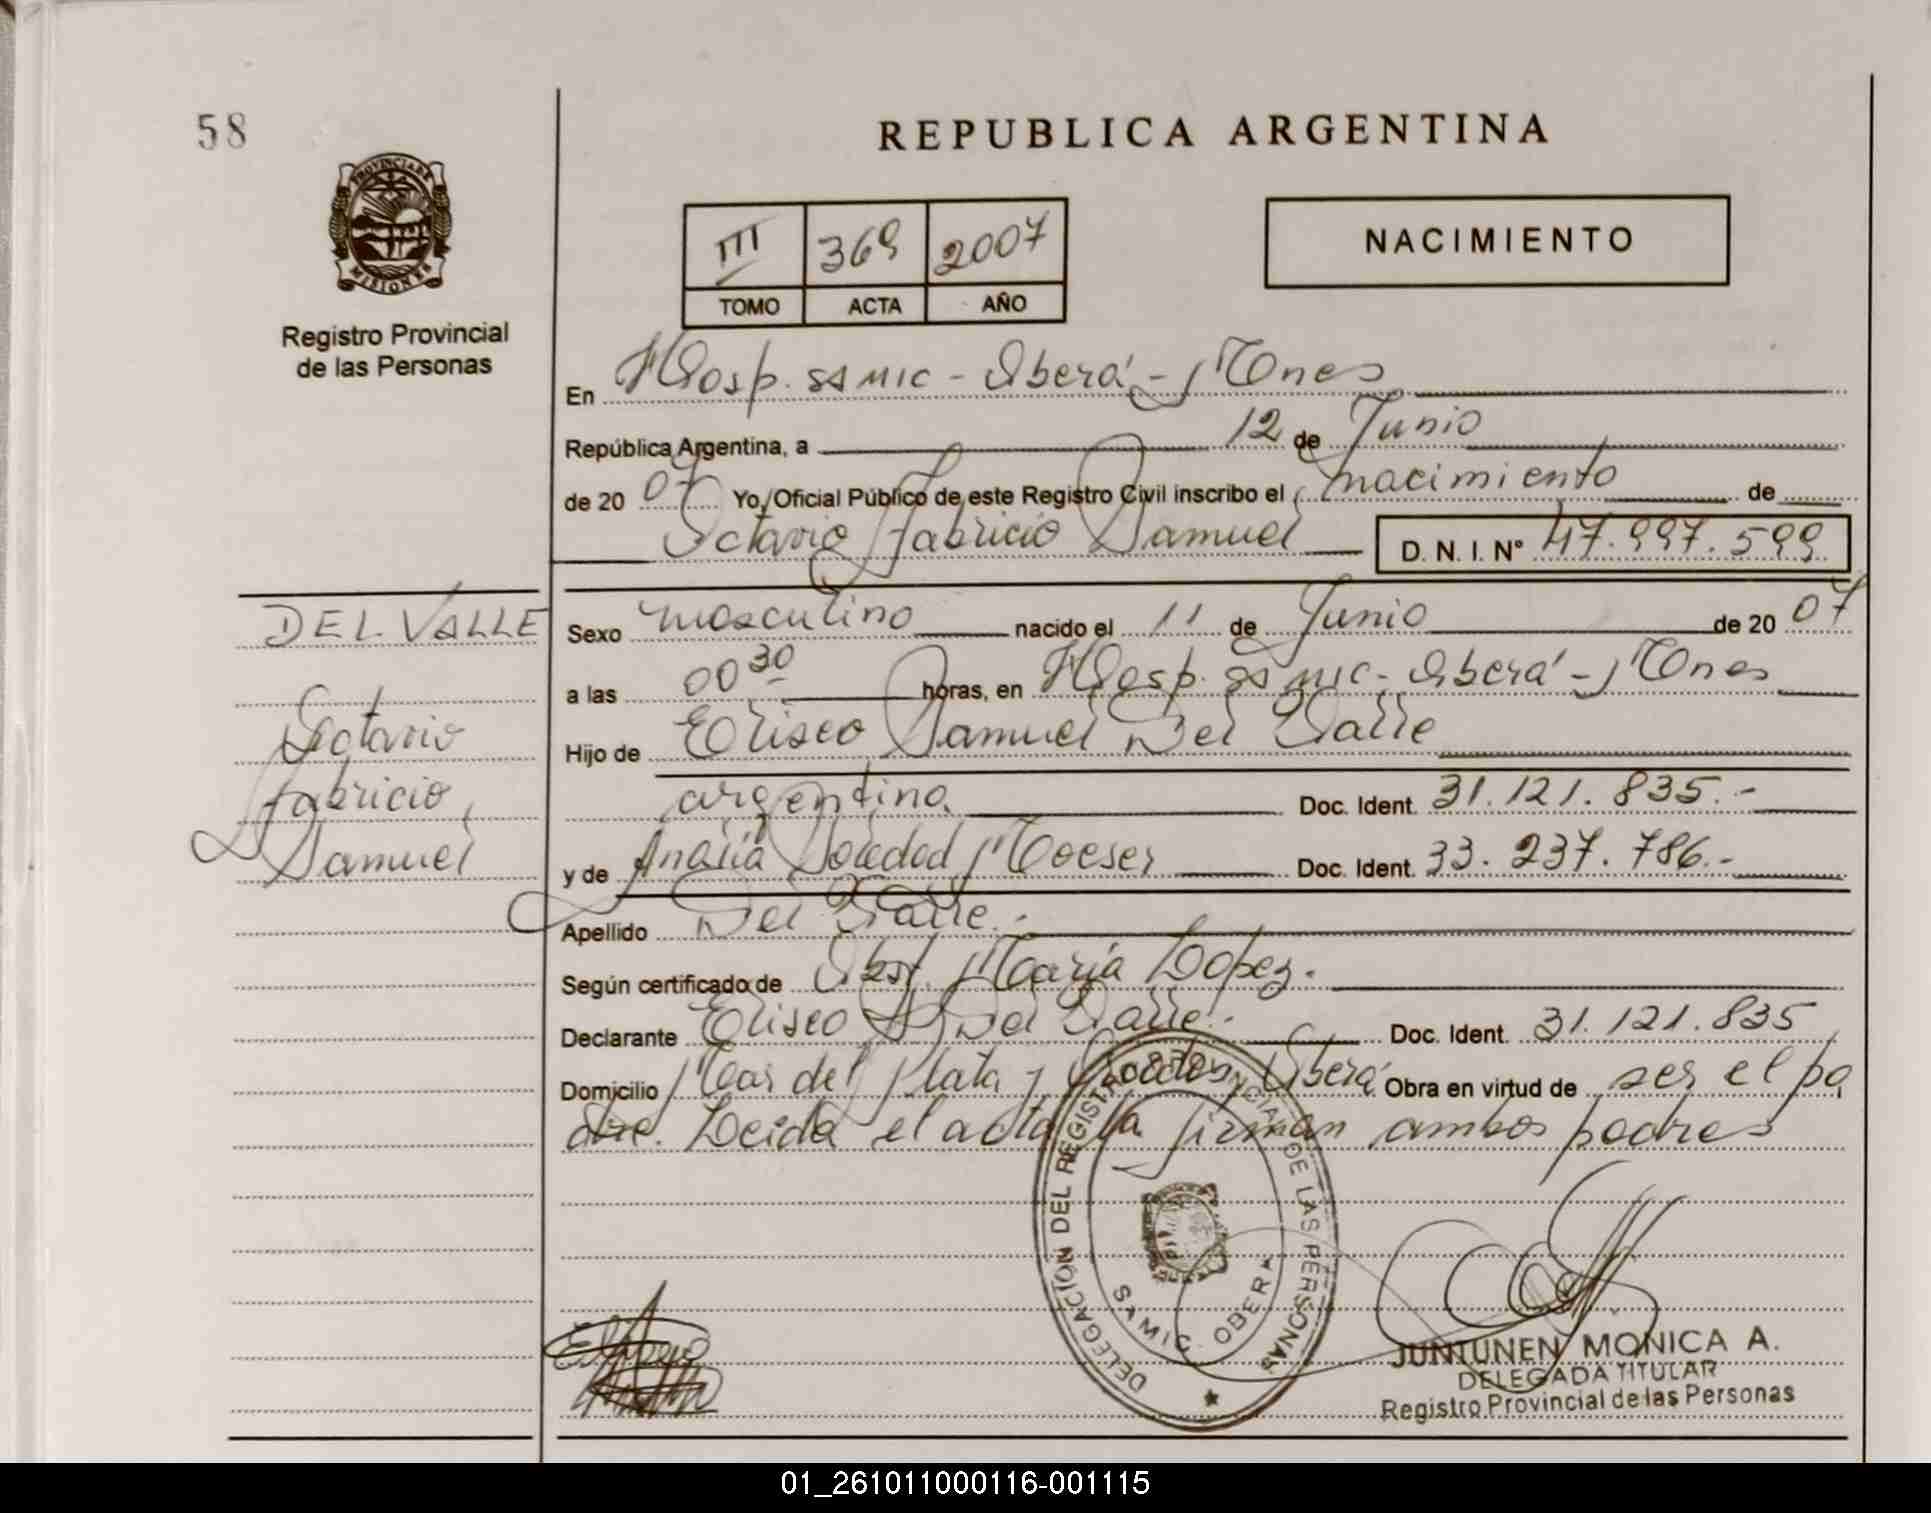 58
REPUBLICA ARGENTINA
PROVINCIA DE
MISIONES
Registro Provincial
de las Personas
III 369 2007
TOMO ACTA AÑO
NACIMIENTO
En Hosp. SAMIC - Oberá - Mnes
República Argentina, a 12 de Junio
de 20 07 Yo, Oficial Público de este Registro Civil inscribo el nacimiento de
Octavio Fabricio Samuel D. N. I. N° 47.997.599
DEL VALLE
Octavio
Fabricio
Samuel
Sexo masculino nacido el 11 de Junio de 20 07
a las 00 30 horas, en Hosp. SAMIC - Oberá - Mnes
Hijo de Eliseo Samuel Del Valle
argentino. Doc. Ident. 31.121.835.-
y de Analía Soledad Moeser Doc. Ident. 33.237.786.-
Apellido Del Valle.-
Según certificado de Obst. María Lopez.
Declarante Eliseo S Del Valle.- Doc. Ident. 31.121.835
Domicilio Mar del Plata y Oberá Obra en virtud de ser el pa
dre. Leída el acta la firman ambos padres
DELEGACIÓN DEL REGISTRO PROVINCIAL DE LAS PERSONAS
SAMIC OBERA
JUNTUNEN MONICA A.
DELEGADA TITULAR
Registro Provincial de las Personas
01_261011000116-001115